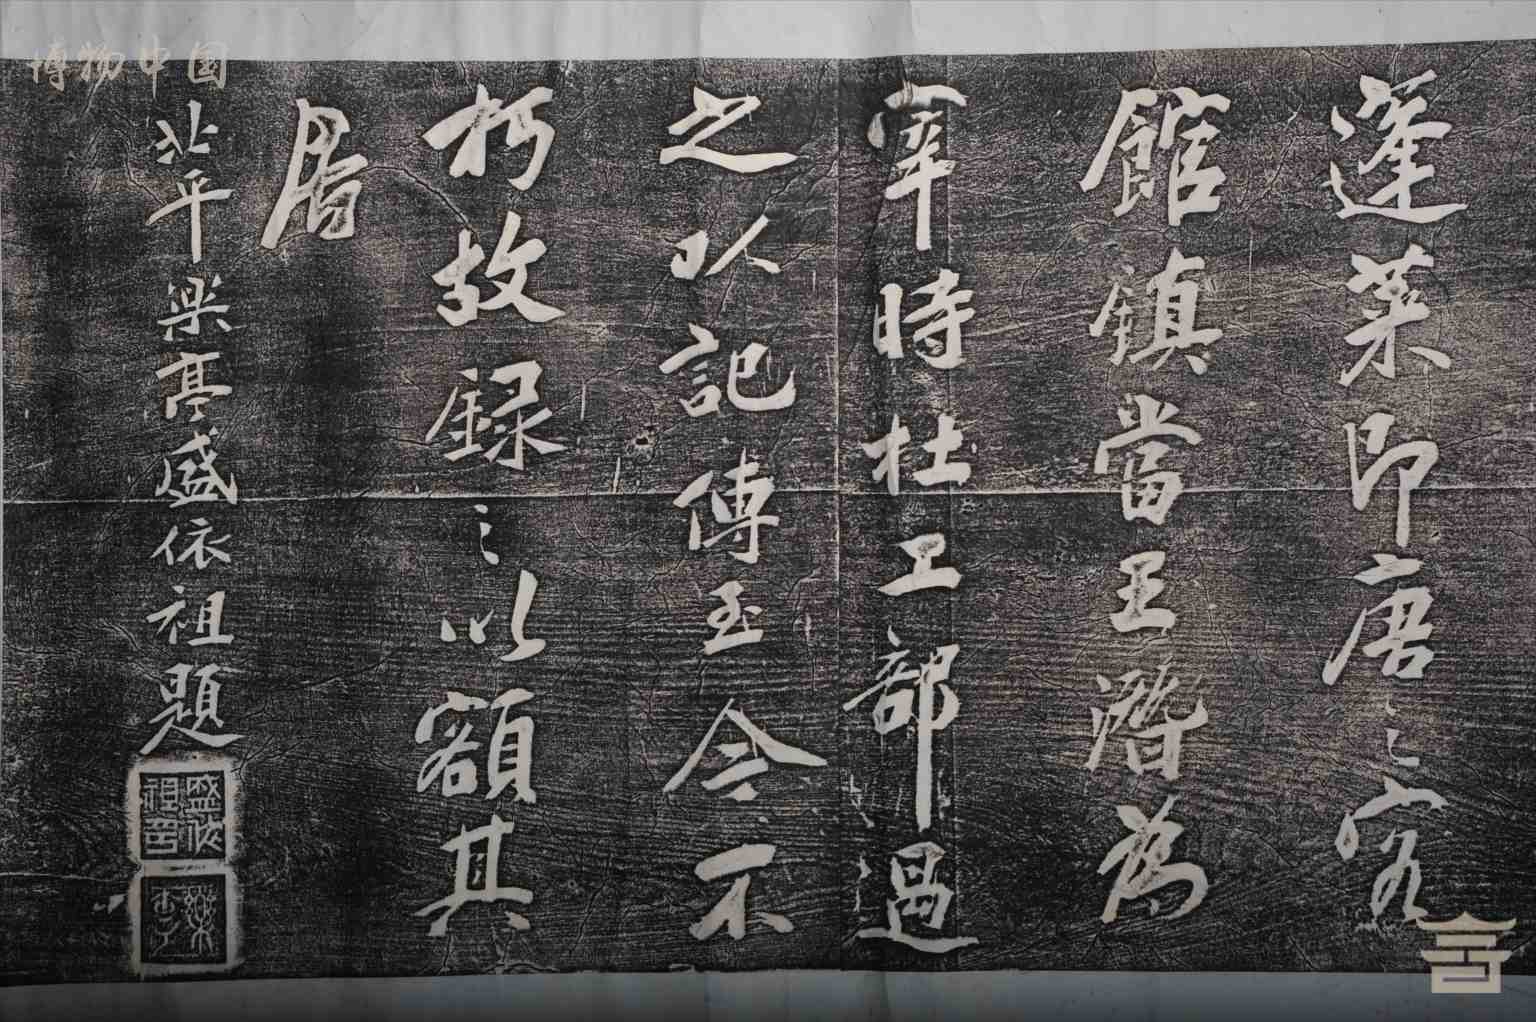 蓬萊即唐之客
館鎮當王潛為
宰時杜工部過
之以記傳玉今不
朽故錄之以額其
居
北平樂亭盛依祖題
盛依
祖印
樂
亭
博物中国